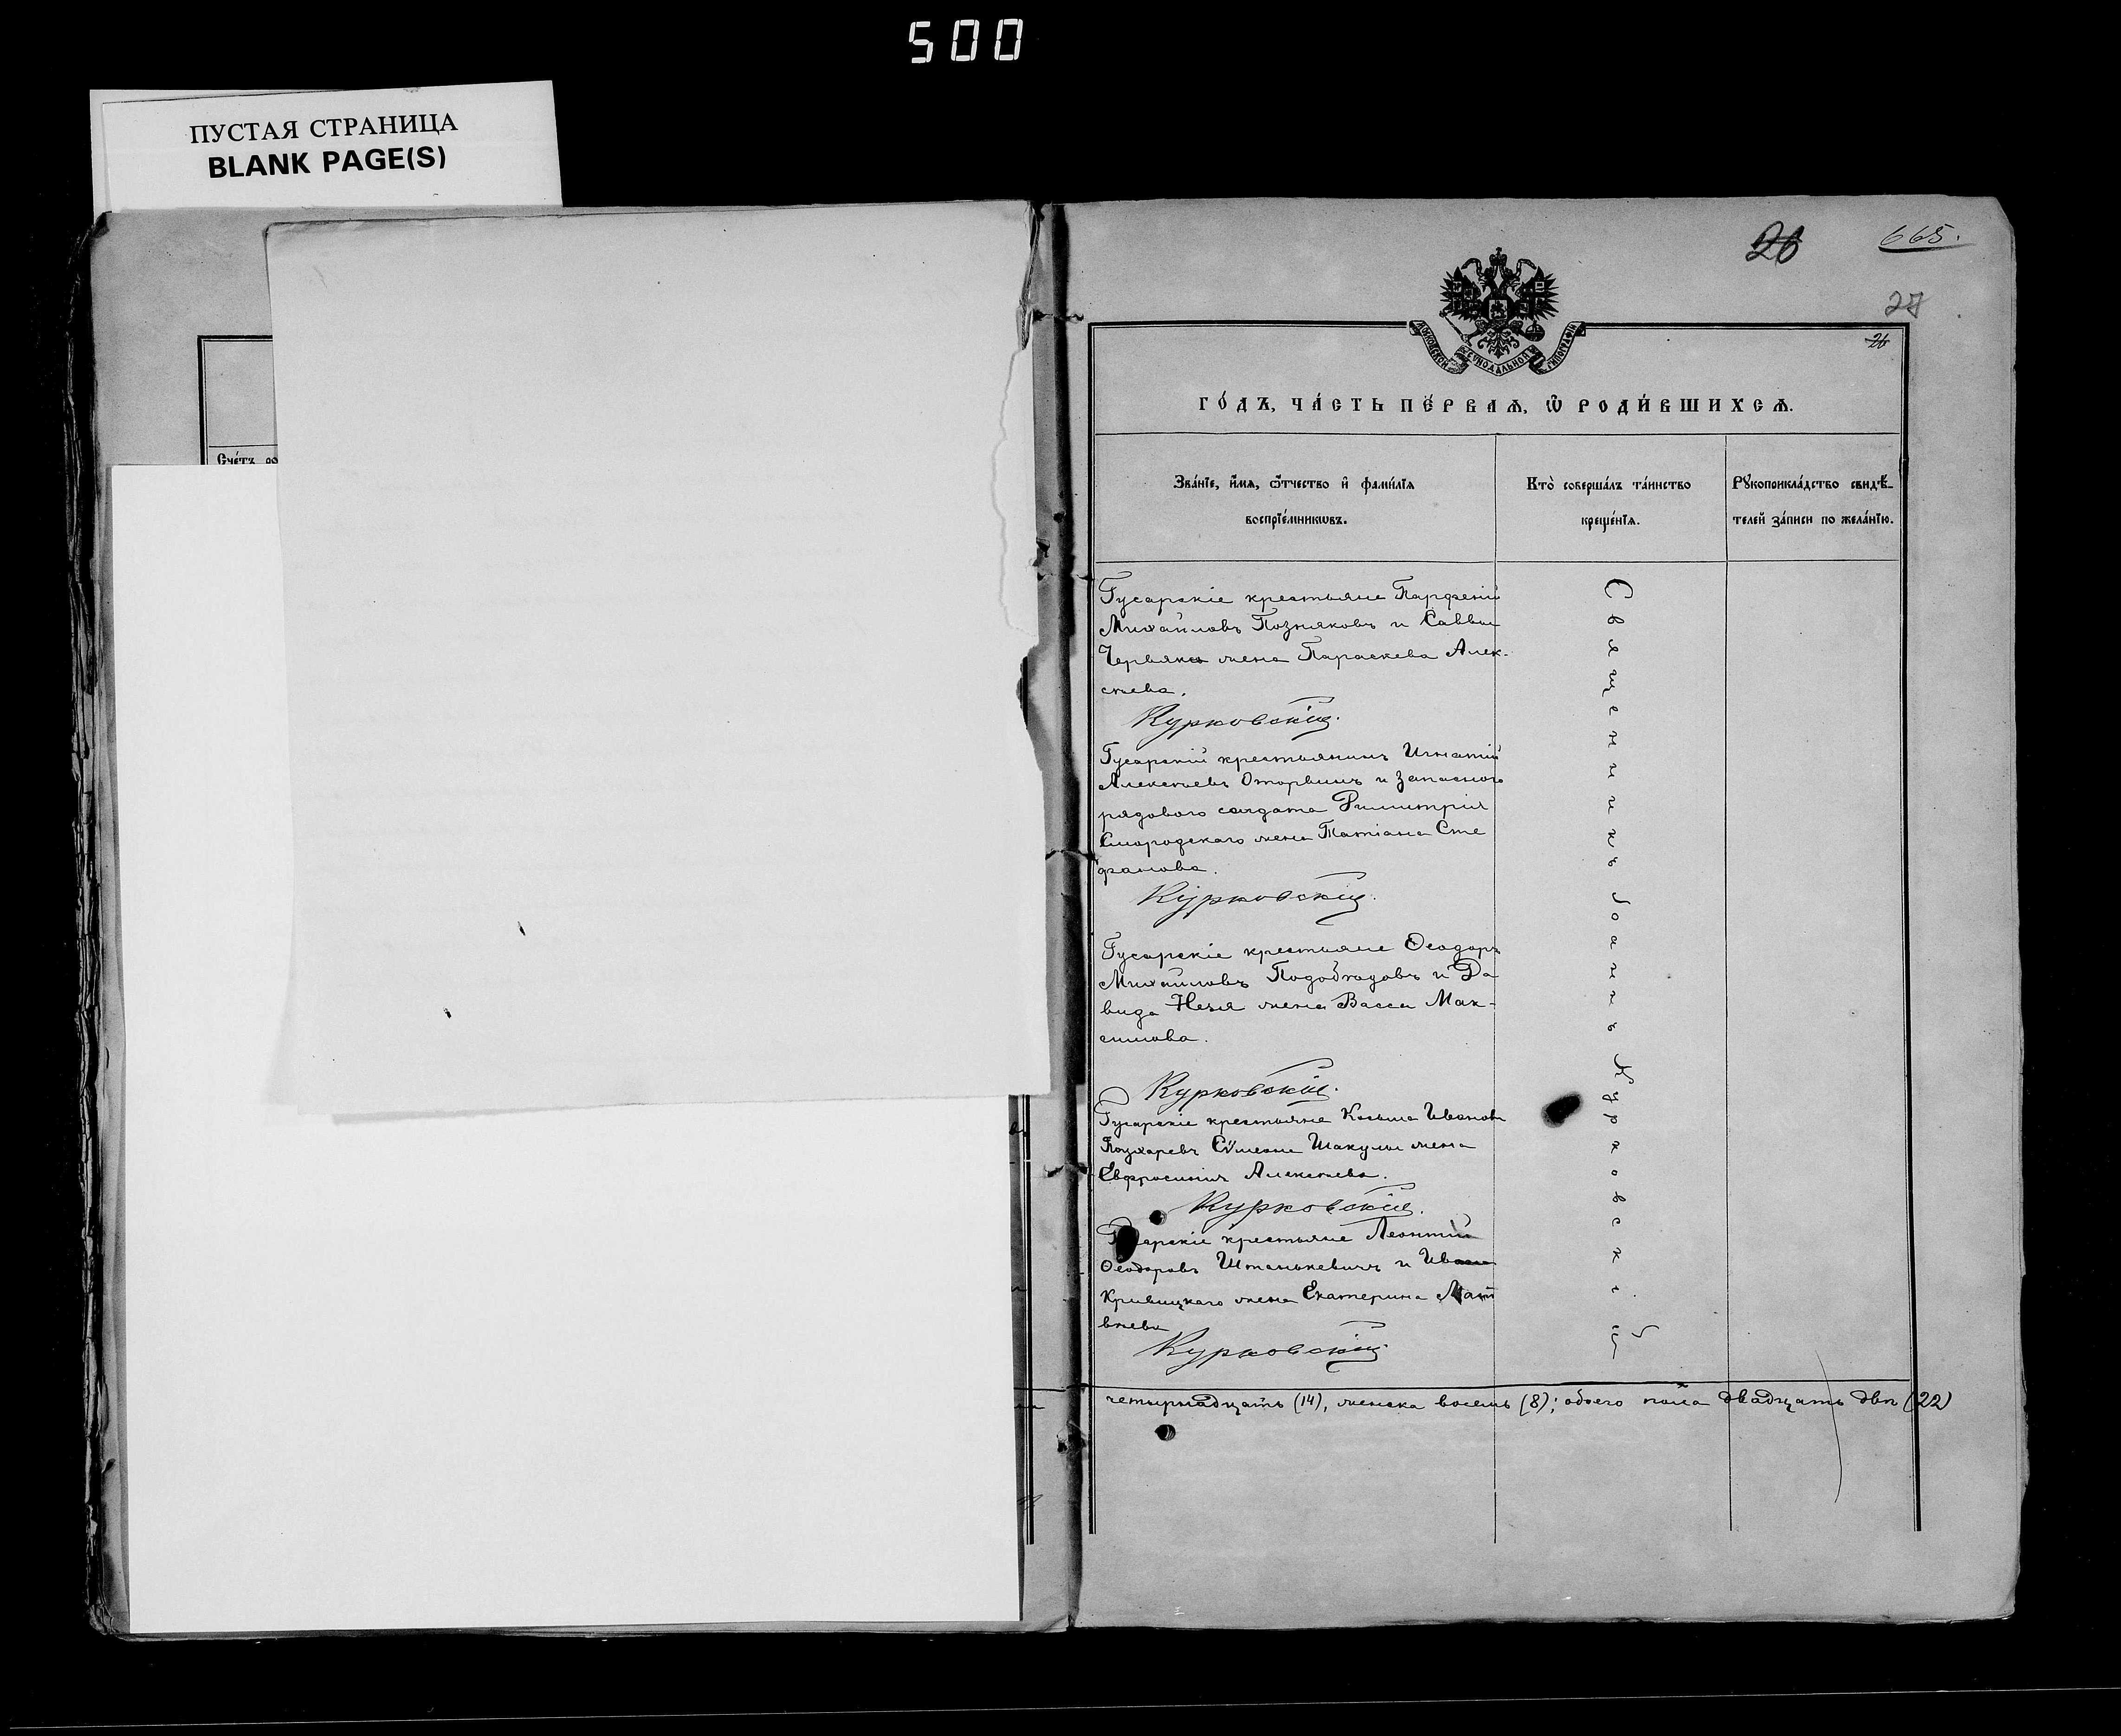 500
ПУСТАЯ СТРАНИЦА
BLANK PAGE(S)
Счéтъ
26
665.
27
26
МОСКОВСКОЙ СѴНОДАЛЬНОЙ ТИПОГРАФІИ
ГО́ДЪ, ЧА́СТЬ ПЕ́РВАѦ, Ѡ҆ РОДИ́ВШИХСѦ.
Зва́нїе, и҆́мѧ, ѻ҆́тчество и҆ фами́лїѧ
воспрїе́мникѡвъ.
Кто̀ соверша́лъ та́инство
креще́нїѧ.
Рꙋкоприкла́дство свидѣ́-
телей за́писи по жела́нїю.
Гусарскіе крестьяне Парфеній
Михайловъ Позняковъ и Саввы
Червяка жена Параскева Алек-
сѣева.
Курковскій.
Гусарскій крестьянинъ Игнатій
Алексѣевъ Оторвинъ и запаснаго
рядового солдата Димитрія
Смородскаго жена Татіана Сте
фанова.
Курковскій.
Гусарскіе крестьяне Ѳеодоръ
Михайловъ Подобѣдовъ и Да
вида жена Васса Мак-
симова.
Курковскій.
Гусарскіе крестьяне Косьма Ивановъ
Сѵмеона Шакули жена
Евфросинія Алексѣева.
Курковскій.
Гусарскіе крестьяне Леонтій
Ѳеодоровъ Штанькевичъ и Ивана
Кривицкаго жена Екатерина Мат
вѣева
Курковскій.
Священникъ Іоаннъ Курковскій
четырнадцать (14), женска восемь (8); обоего пола двадцать два (22)